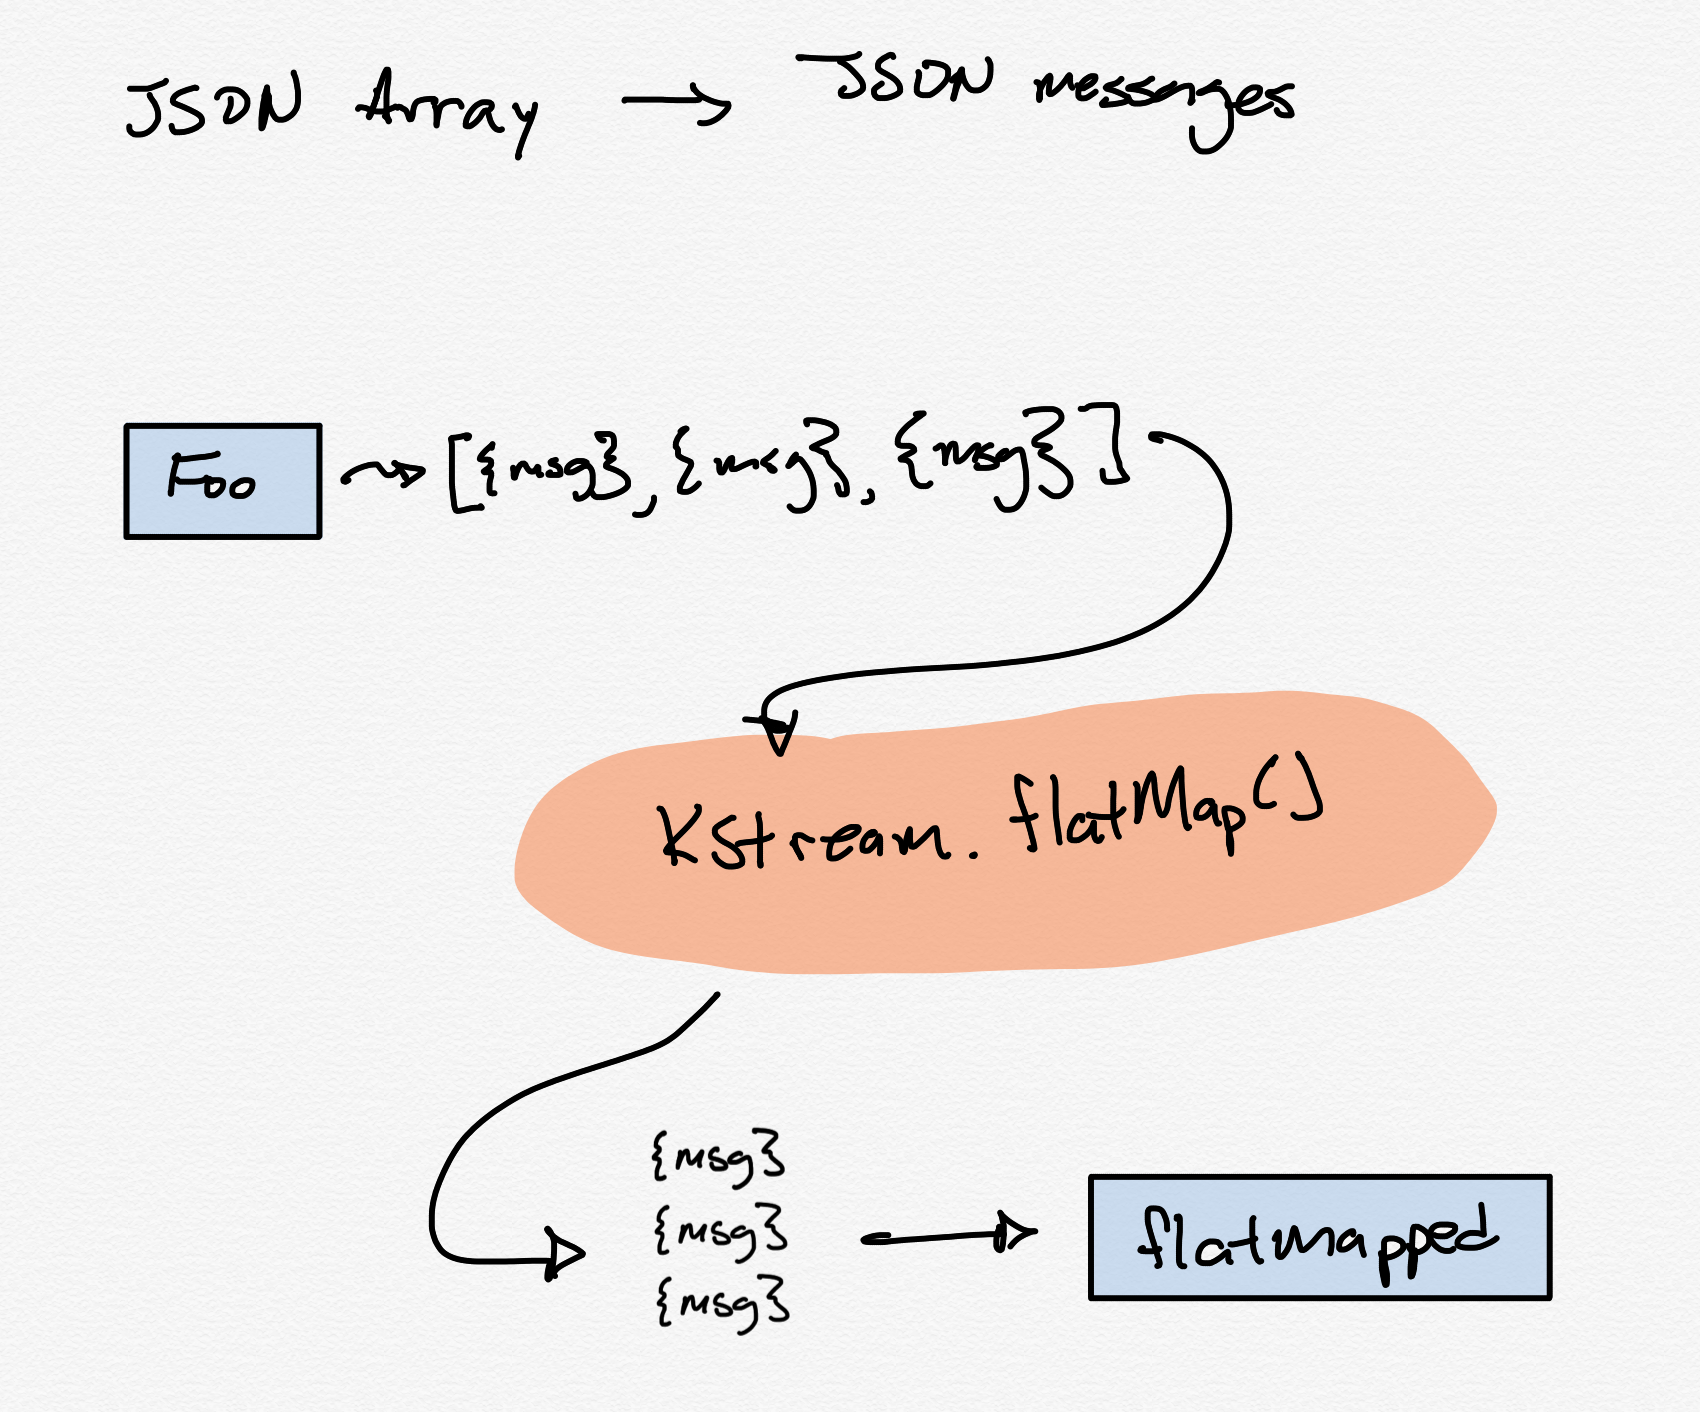 JSON Array → JSON messages
Foo → [{msg}, {msg}, {msg}]
KStream.flatMap()
{msg}
{msg}
{msg}
flatmapped